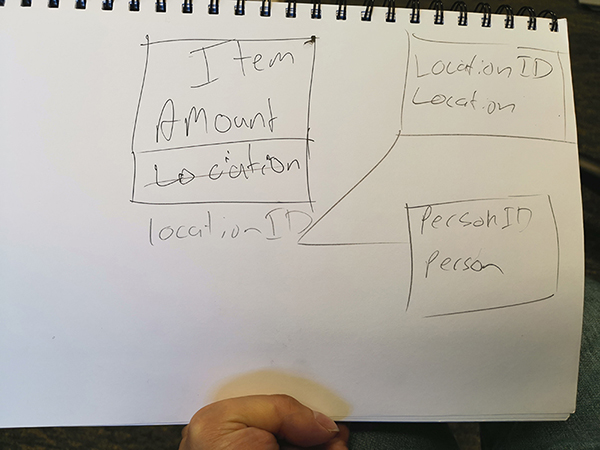 Item
Amount
Location
locationID
LocationID
Location
PersonID
person